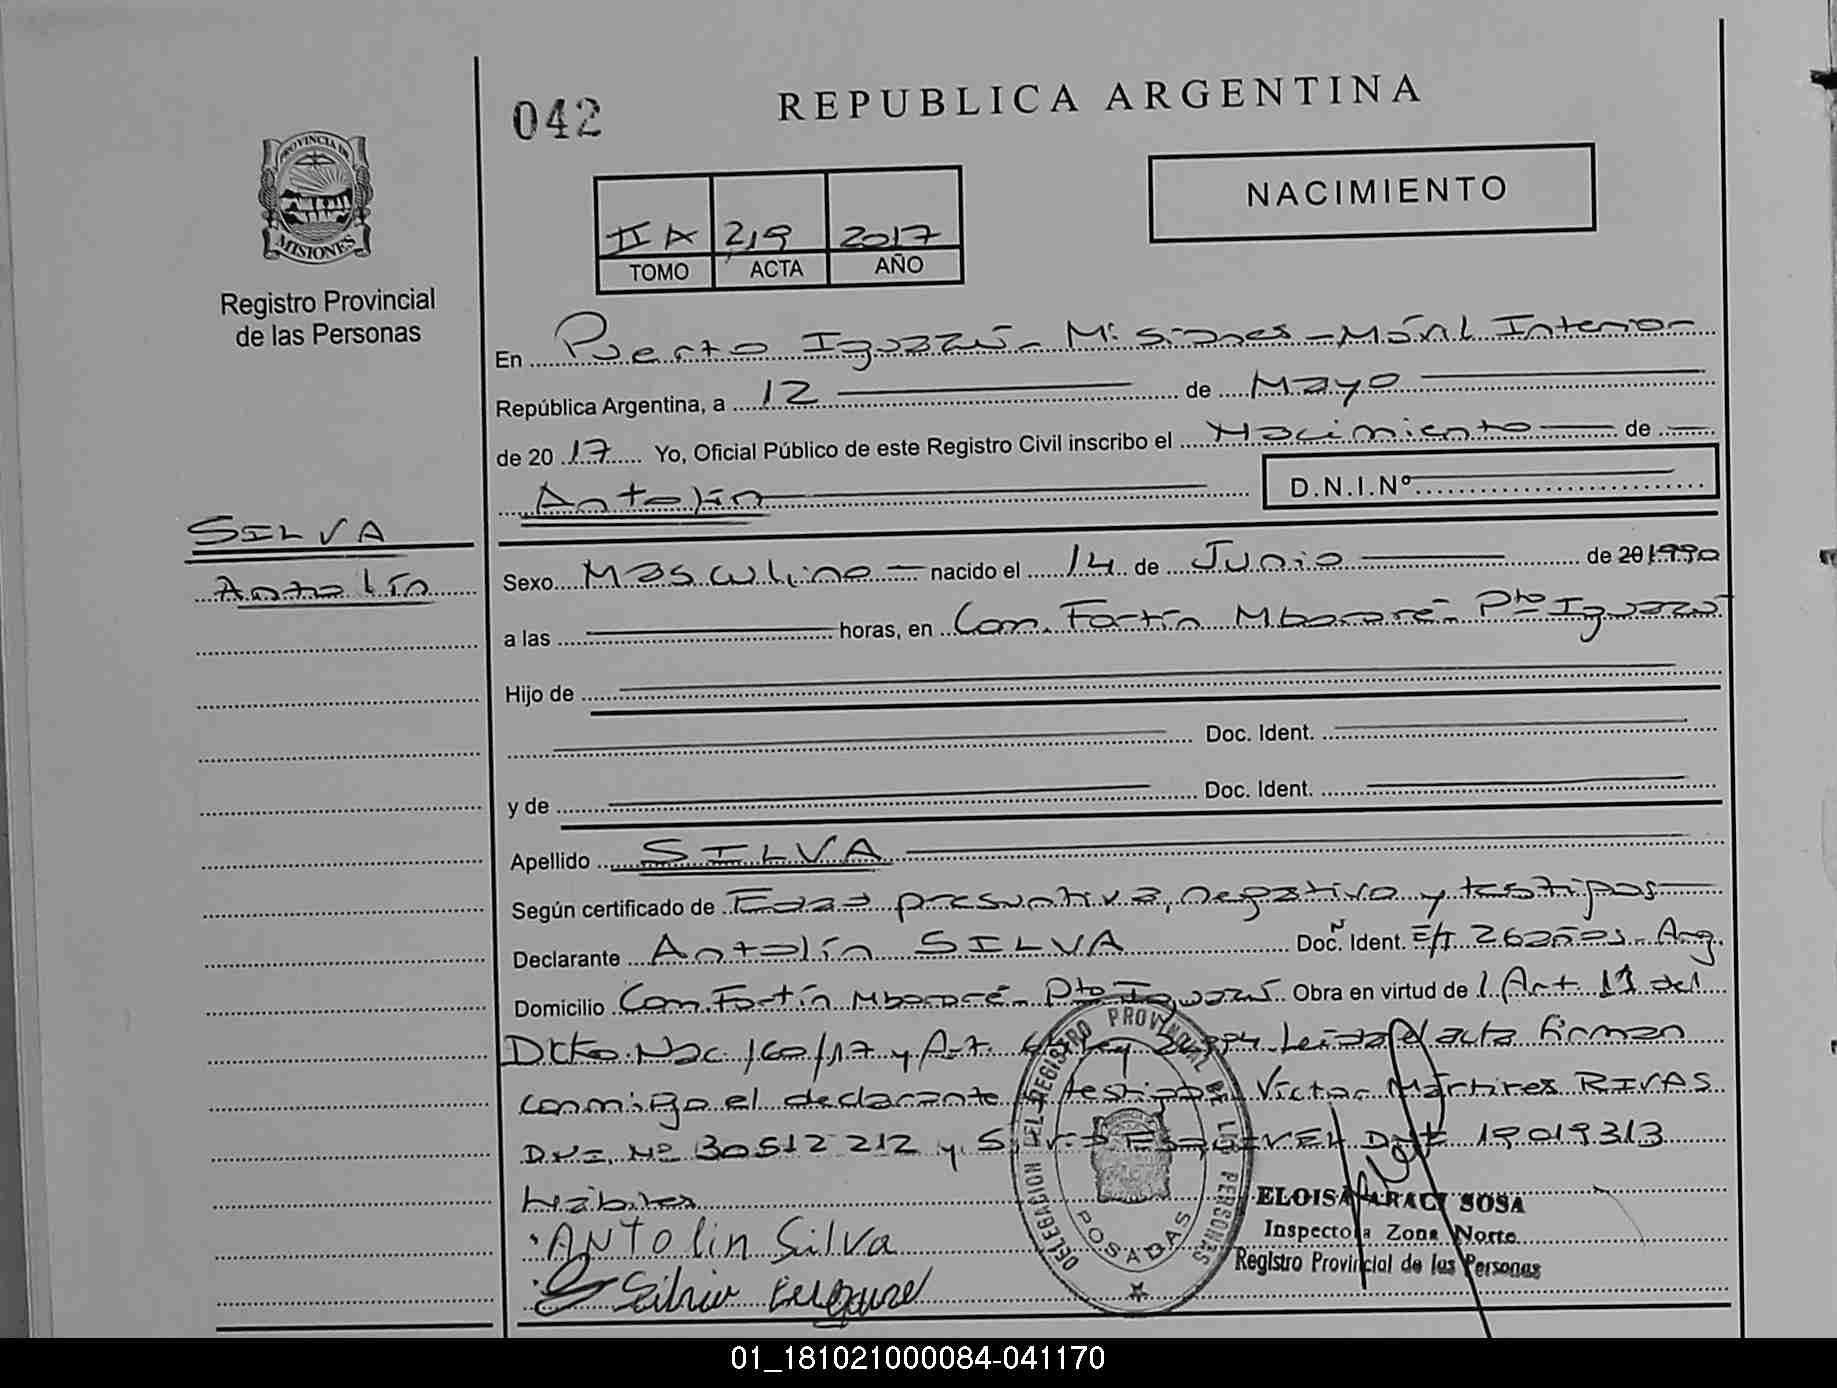 042
REPUBLICA ARGENTINA
PROVINCIA DE
MISIONES
Registro Provincial
de las Personas
NACIMIENTO
II A 219 2017
TOMO ACTA AÑO
En Puerto Iguazú - Misiones - Móvil Interior
República Argentina, a 12 de Mayo
de 2017 Yo, Oficial Público de este Registro Civil inscribo el Nacimiento de
Antolín D.N.I.Nº
SILVA
Antolín
Sexo Masculino nacido el 14 de Junio de 201990
a las horas, en Com. Fortín Mbororé - Pto Iguazú
Hijo de
Doc. Ident.
y de Doc. Ident.
Apellido SILVA
Según certificado de Edad presuntiva, negativo y testigos
Declarante Antolín SILVA Doc. Ident. E/T Arg.
Domicilio Com. Fortín Mbororé - Pto Iguazú Obra en virtud del Art 11 del
Dcto. Nac. 160/17 y Art. Ley Leida el acta firman
conmigo el declarante testigos Víctor Mártires RIVAS
D.N.I. Nº 30512212 y 19019313
hábiles
ANTolin Silva
Silvia
DELEGACION DEL REGISTRO PROVINCIAL DE LAS PERSONAS
POSADAS
ELOISA ARACI SOSA
Inspectora Zona Norte
Registro Provincial de las Personas
01_181021000084-041170